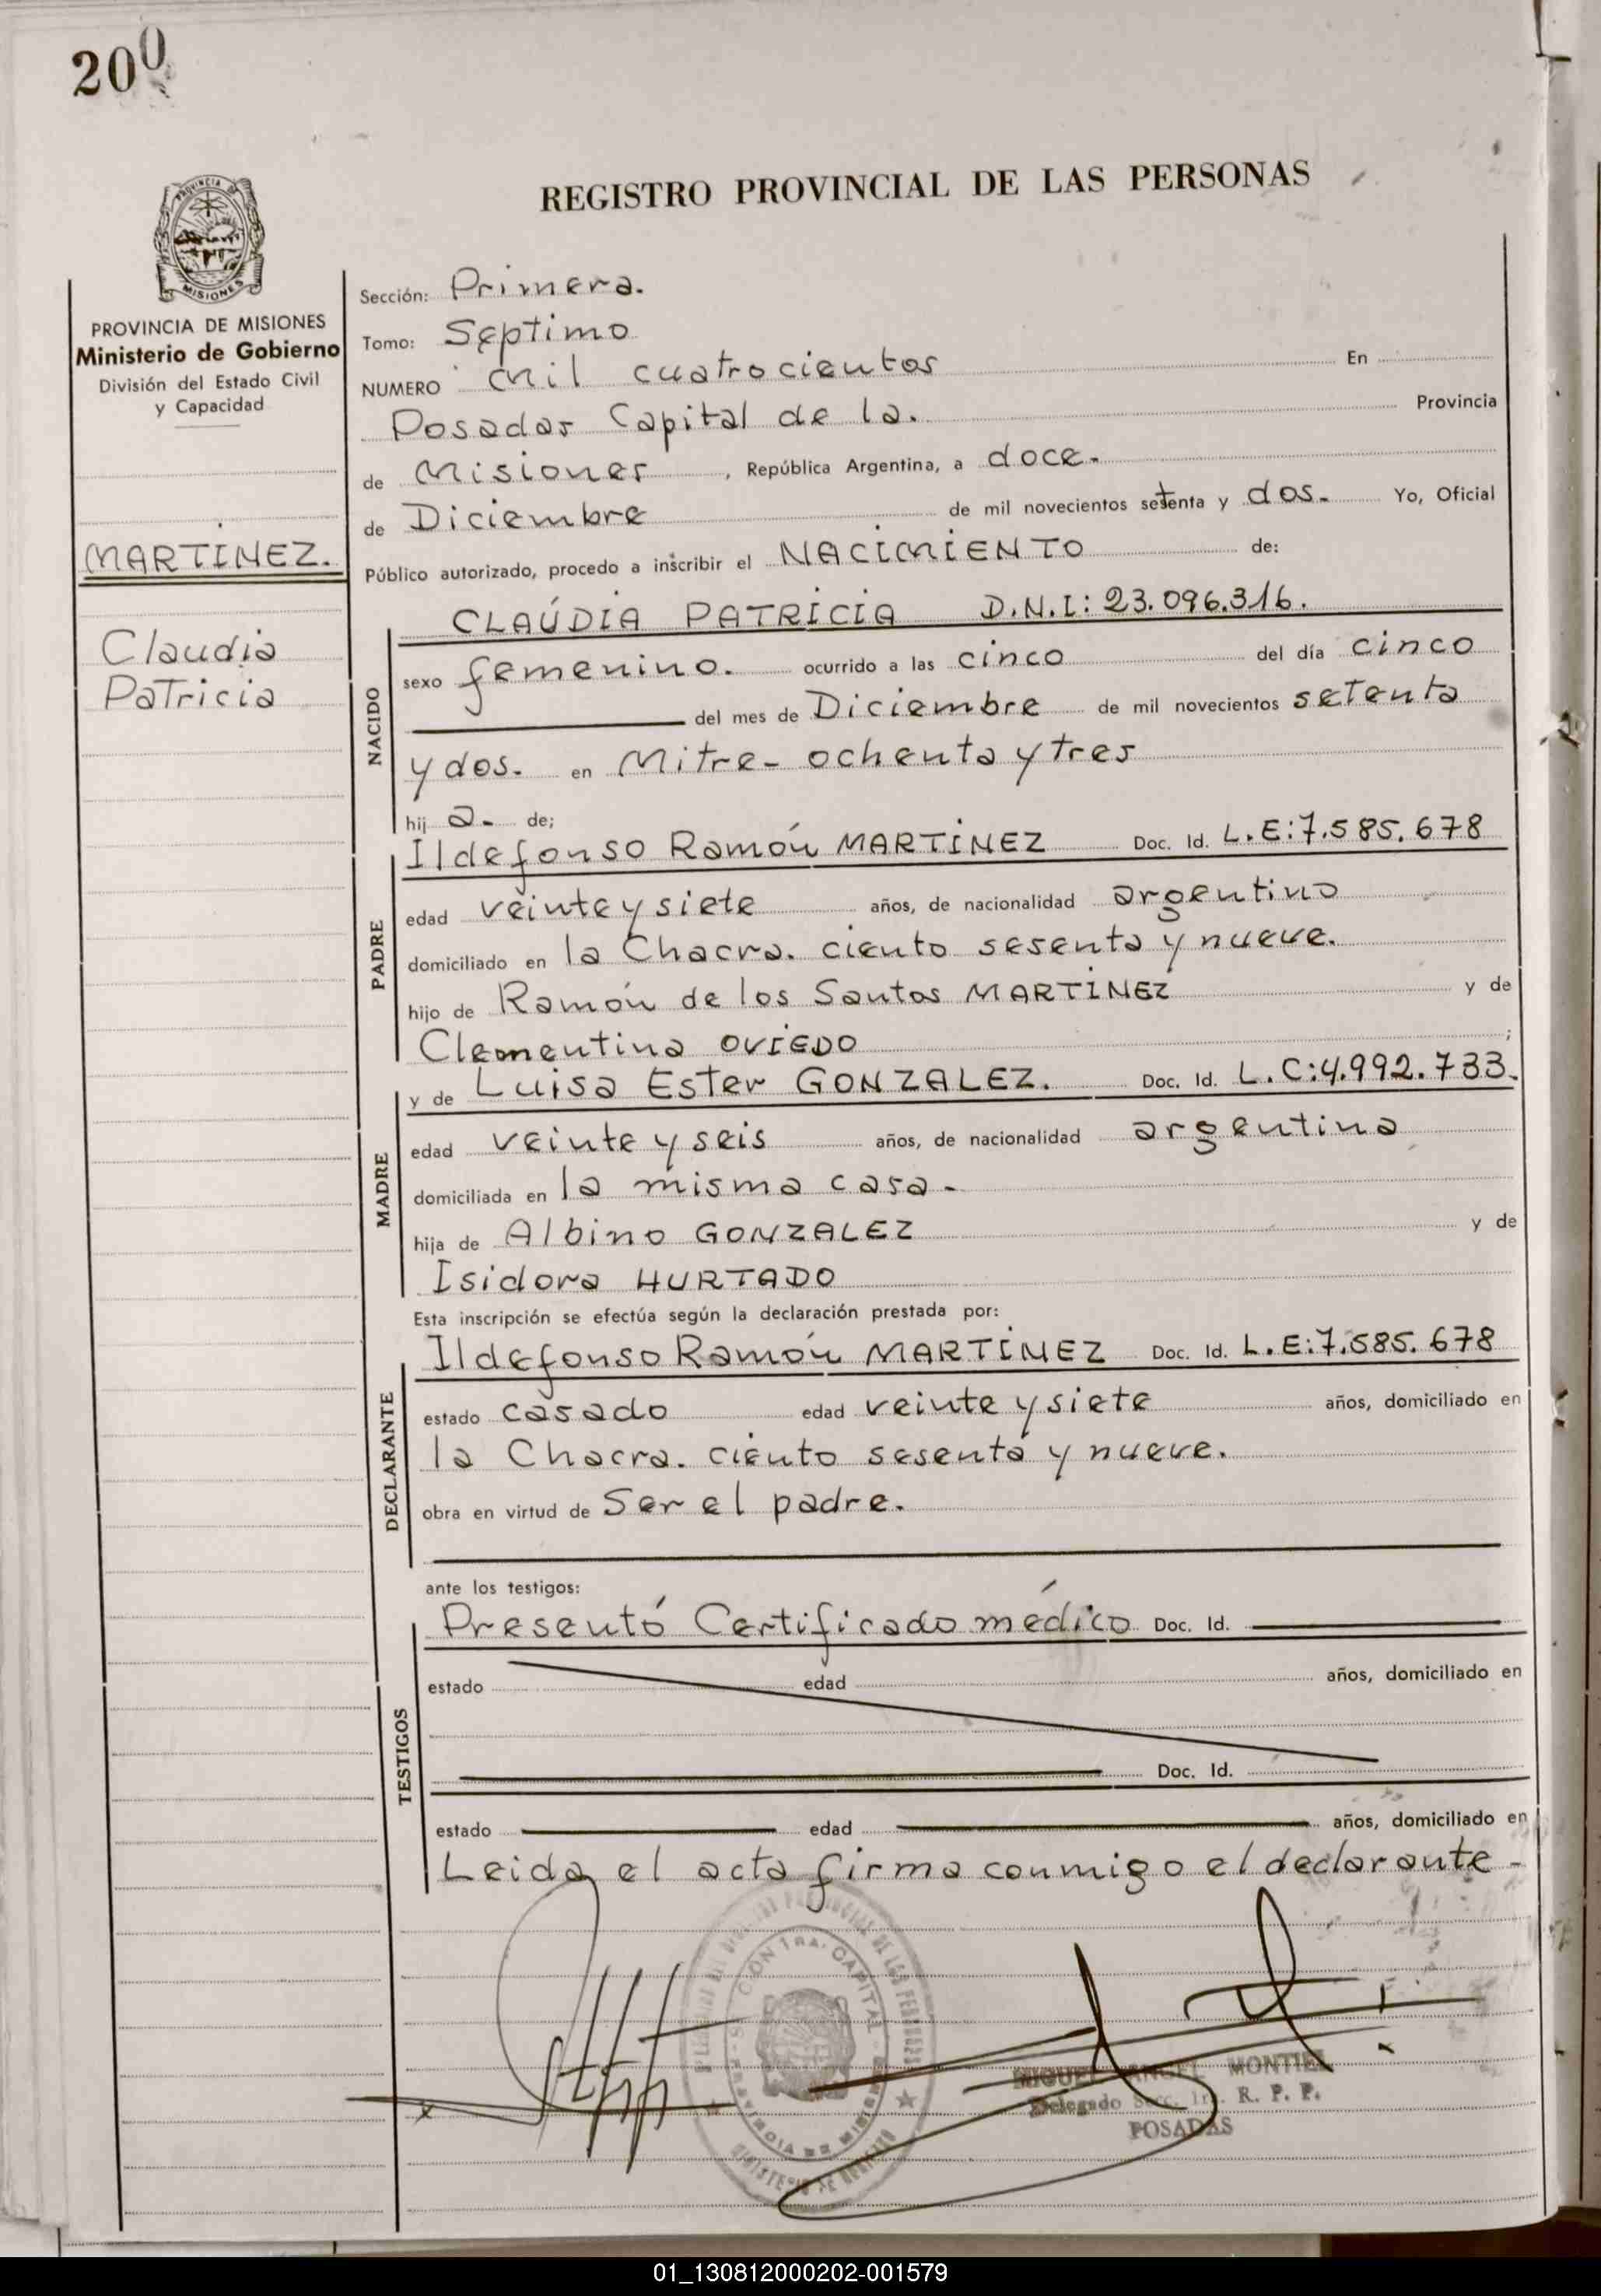 200
REGISTRO PROVINCIAL DE LAS PERSONAS
PROVINCIA DE MISIONES
Ministerio de Gobierno
División del Estado Civil
y Capacidad
MARTINEZ.
Claudia
Patricia
Sección: Primera.
Tomo: Septimo
NUMERO Mil cuatrocientos En
Posadas Capital de la. Provincia
de Misiones, República Argentina, a doce.
de Diciembre de mil novecientos setenta y dos. Yo, Oficial
Público autorizado, procedo a inscribir el NACIMIENTO de:
NACIDO
CLAÚDIA PATRICIA D.N.I: 23.096.316.
sexo femenino. ocurrido a las cinco del día cinco
del mes de Diciembre de mil novecientos setenta
y dos. en Mitre- ochenta y tres
hij a. de;
PADRE
Ildefonso Ramón MARTINEZ Doc. Id. L.E:7.585.678
edad veinte y siete años, de nacionalidad argentino
domiciliado en la Chacra. ciento sesenta y nueve.
hijo de Ramón de los Santos MARTINEZ y de
Clementina OVIEDO ;
MADRE
y de Luisa Ester GONZALEZ. Doc. Id. L.C:4.992.733.
edad veinte y seis años, de nacionalidad argentina
domiciliada en la misma casa-
hija de Albino GONZALEZ y de
Isidora HURTADO
Esta inscripción se efectúa según la declaración prestada por:
DECLARANTE
Ildefonso Ramón MARTINEZ Doc. Id. L.E:7.585.678
estado casado edad veinte y siete años, domiciliado en
la Chacra. ciento sesenta y nueve.
obra en virtud de Ser el padre.
ante los testigos:
TESTIGOS
Presentó Certificado médico Doc. Id.
estado edad años, domiciliado en
Doc. Id.
estado edad años, domiciliado en
Leida el acta firma conmigo el declarante-
MIGUEL ANGEL MONTIEL
Delegado Secc. R. P. P.
POSADAS
01_130812000202-001579